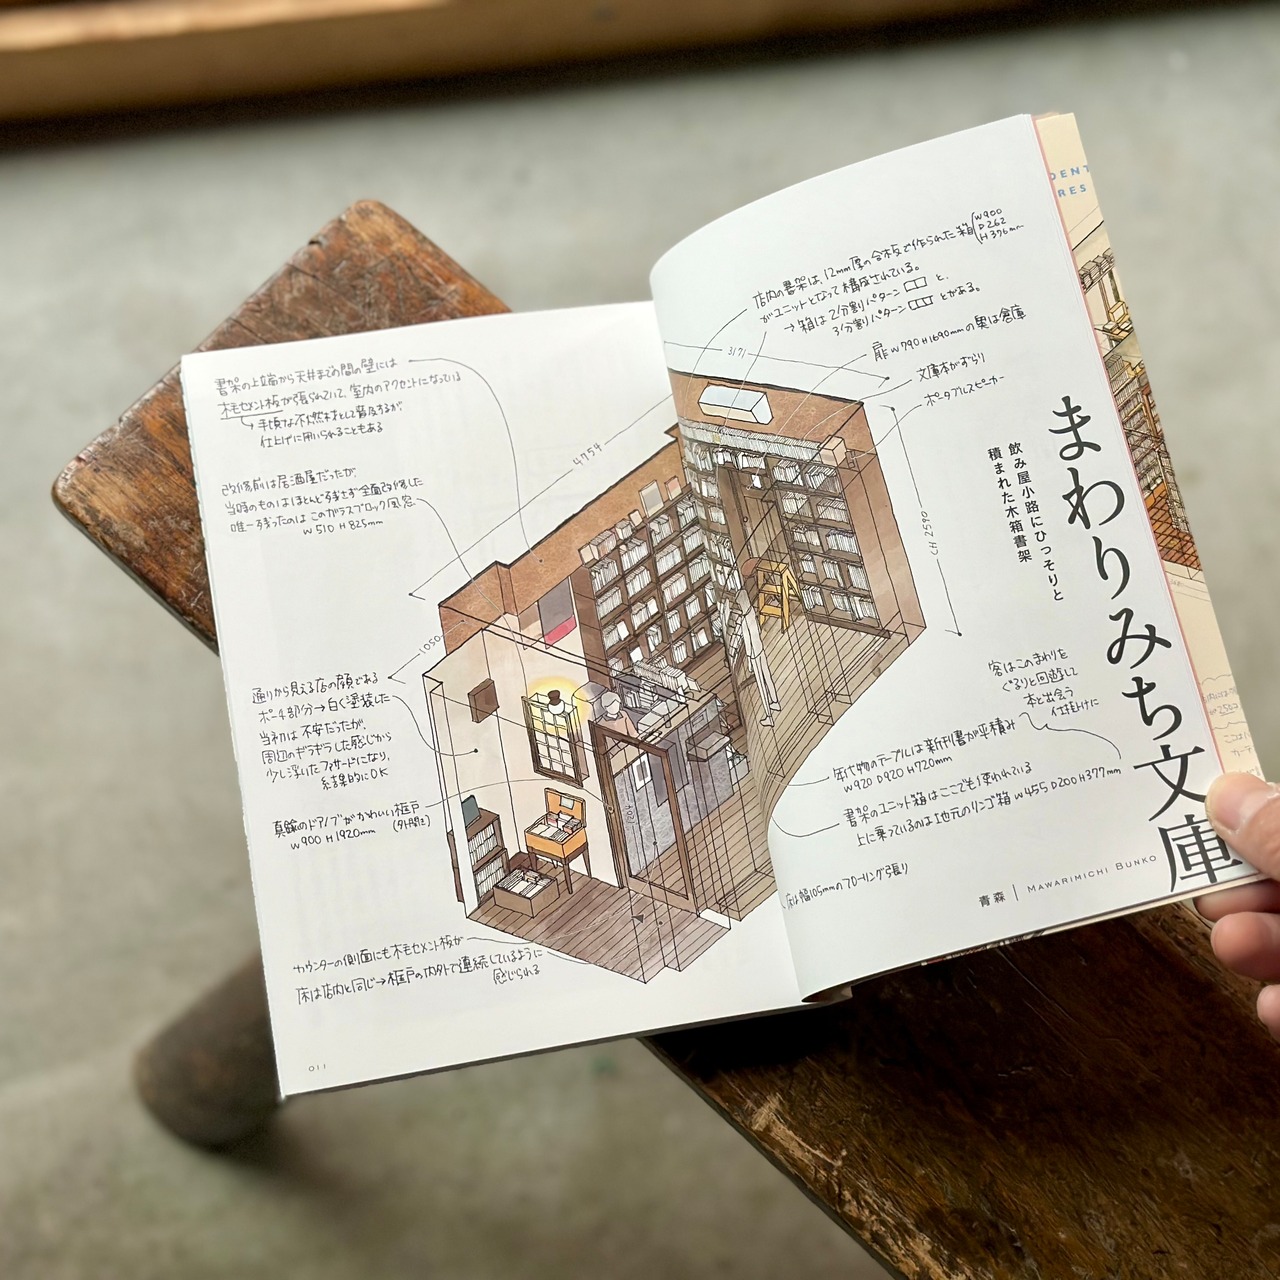 まわりみち文庫
飲み屋小路にひっそりと
積まれた木箱書架
青森 | MAWARIMICHI BUNKO
店内の書架は、12mm厚の合板で作られた箱(W900 D262 H376mm
がユニットとなって構成されている。
→箱は2分割パターン と、
3分割パターン とがある。
扉W790H1690mmの奥は倉庫
文庫本がずらり
ポータブルスピーカー
3171
4754
CH2590
1050
客はこのまわりを
ぐるりと回遊して
本と出会う
仕掛けに
年代物のテーブルは新刊書が平積み
W920 D920 H720mm
書架のユニット箱はここでも使われている
上に乗っているのは地元のリンゴ箱 W455 D200 H377mm
床は幅105mmのフローリング張り
書架の上端から天井までの間の壁には
木毛セメント板が張られていて、室内のアクセントになっている
→手頃な不燃材として普及するが、
仕上げに用いられることもある
改修前は居酒屋だったが、
当時のものはほとんど残さず全面改修した
唯一残ったのはこのガラスブロック風窓
W510 H825mm
通りから見える店の顔である
ポーチ部分→白く塗装した
当初は不安だったが、
周辺のギラギラした感じから
少し浮いたファサードになり、
結果的にOK
真鍮のドアノブがかわいい框戸
W900 H1920mm (外開き)
カウンターの側面にも木毛セメント板が
床は店内と同じ→框戸の内外で連続しているように
感じられる
011
DENT
RES